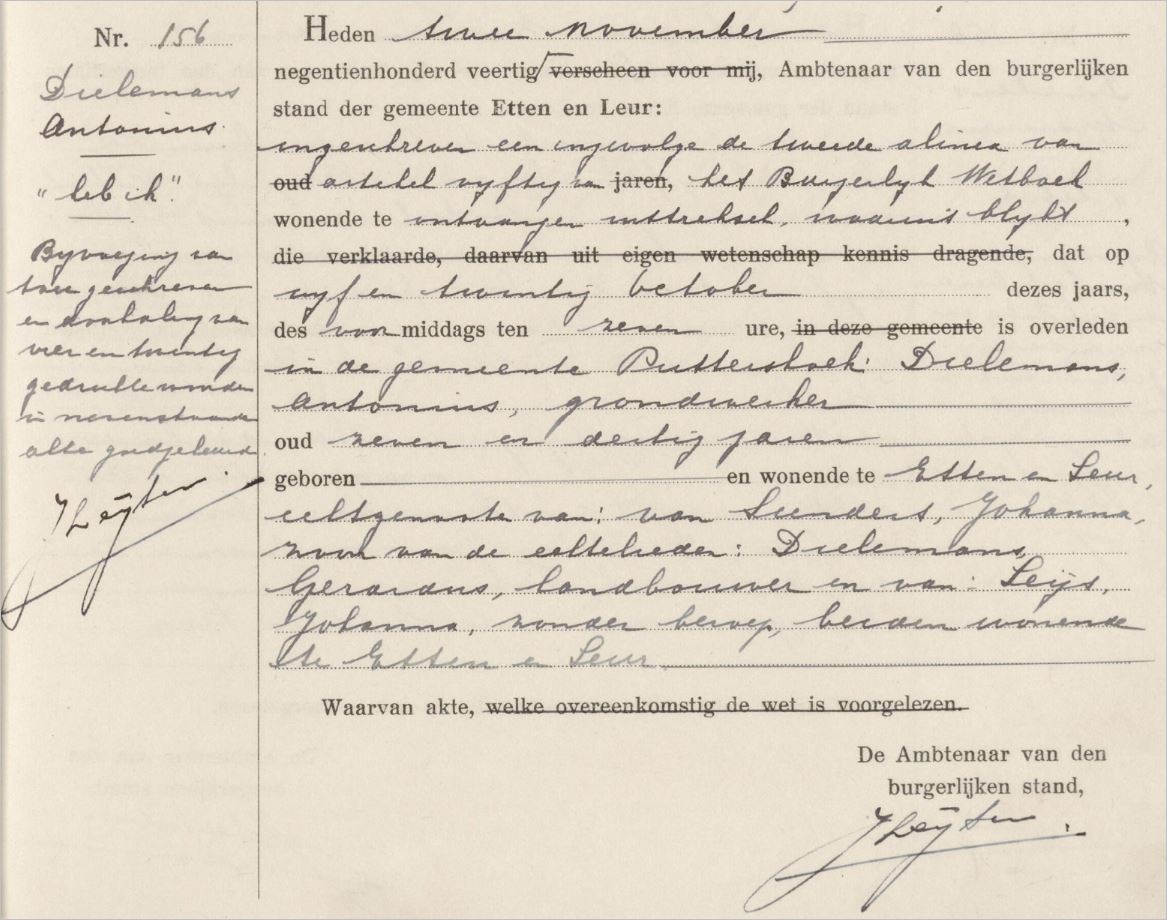 Nr. 156
Dielemans
Antonius.
"heb ik".
Byvoeging van
twee geschreven
en doorhaling van
vier en twintig
gedrukte woorden
in nevenstaande
akte goedgekeurd
Heden twee november
negentienhonderd veertig verscheen voor mij, Ambtenaar van den burgerlijken
stand der gemeente Etten en Leur:
ingeschreven een ingevolge de tweede alinea van
oud artikel vyftig van jaren, het Burgerlyk Wetboek
wonende te ontvangen uittreksel, waaruit blykt ,
die verklaarde, daarvan uit eigen wetenschap kennis dragende, dat op
vyf en twintig october dezes jaars,
des voormiddags ten zeven ure, in deze gemeente is overleden
in de gemeente Puttershoek: Dielemans,
Antonius, grondwerker
oud zeven en dertig jaren
geboren en wonende te Etten en Leur,
echtgenoote van: van Lunders, Johanna,
zoon van de echtelieden: Dielemans,
Gerardus, landbouwer en van: Leijs,
Johanna, zonder beroep, beiden wonende
te Etten en Leur.
Waarvan akte, welke overeenkomstig de wet is voorgelezen.
De Ambtenaar van den
burgerlijken stand,